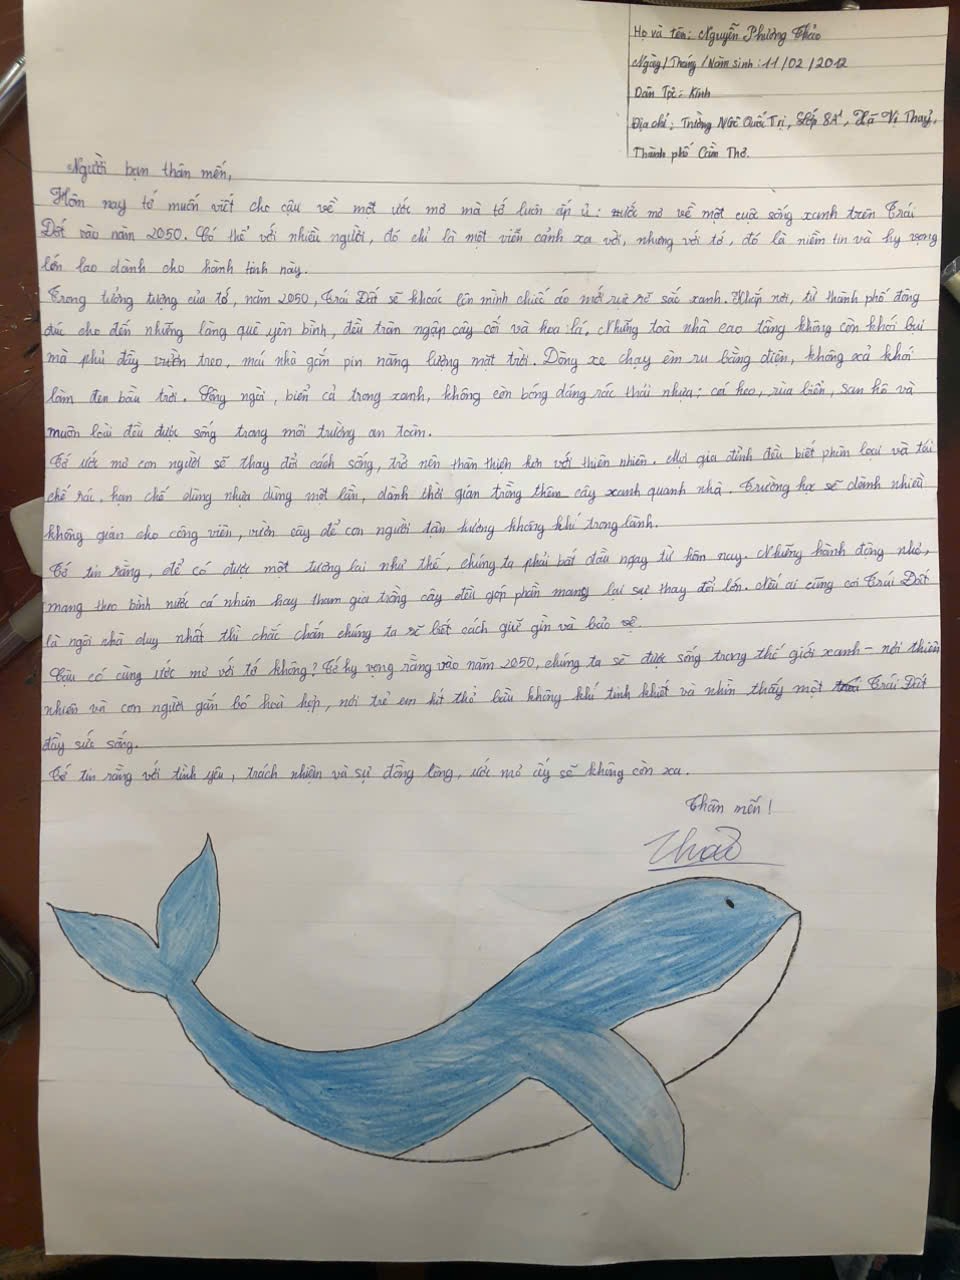 Họ và tên: Nguyễn Phương Thảo
Ngày/Tháng/Năm sinh: 11/02/2012
Dân Tộc: Kinh
Địa chỉ: Trường Ngô Quốc Trị, Lớp 8A¹, Xã Vị Thuỷ,
Thành phố Cần Thơ.
Người bạn thân mến,
Hôm nay tớ muốn viết cho cậu về một ước mơ mà tớ luôn ấp ủ: ước mơ về một cuộc sống xanh trên Trái
Đất vào năm 2050. Có thể với nhiều người, đó chỉ là một viễn cảnh xa vời, nhưng với tớ, đó là niềm tin và hy vọng
lớn lao dành cho hành tinh này.
Trong tưởng tượng của tớ, năm 2050, Trái Đất sẽ khoác lên mình chiếc áo mới rực rỡ sắc xanh. Khắp nơi, từ thành phố đông
đúc cho đến những làng quê yên bình, đều tràn ngập cây cối và hoa lá, Những toà nhà cao tầng không còn khói bụi
mà phủ đầy vườn treo, mái nhà gắn pin năng lượng mặt trời. Dòng xe chạy êm ru bằng điện, không xả khói
làm đen bầu trời. Sông ngòi, biển cả trong xanh, không còn bóng dáng rác thải nhựa; cá heo, rùa biển, san hô và
muôn loài đều được sống trong môi trường an toàn.
Tớ ước mơ con người sẽ thay đổi cách sống, trở nên thân thiện hơn với thiên nhiên. Mọi gia đình đều biết phân loại và tái
chế rác, hạn chế dùng nhựa dùng một lần, dành thời gian trồng thêm cây xanh quanh nhà. Trường học sẽ dành nhiều
không gian cho công viên, vườn cây để con người tận hưởng không khí trong lành.
Tớ tin rằng, để có được một tương lai như thế, chúng ta phải bắt đầu ngay từ hôm nay. Những hành động nhỏ,
mang theo bình nước cá nhân hay tham gia trồng cây đều góp phần mang lại sự thay đổi lớn. Nếu ai cũng coi Trái Đất
là ngôi nhà duy nhất thì chắc chắn chúng ta sẽ biết cách giữ gìn và bảo vệ.
Cậu có cùng ước mơ với tớ không? Tớ hy vọng rằng vào năm 2050, chúng ta sẽ được sống trong thế giới xanh - nơi thiên
nhiên và con người gắn bó hoà hợp, nơi trẻ em hít thở bầu không khí tinh khiết và nhìn thấy một Trái Đất
đầy sức sống.
Tớ tin rằng với tình yêu, trách nhiệm và sự đồng lòng, ước mơ ấy sẽ không còn xa.
Thân mến!
Thảo